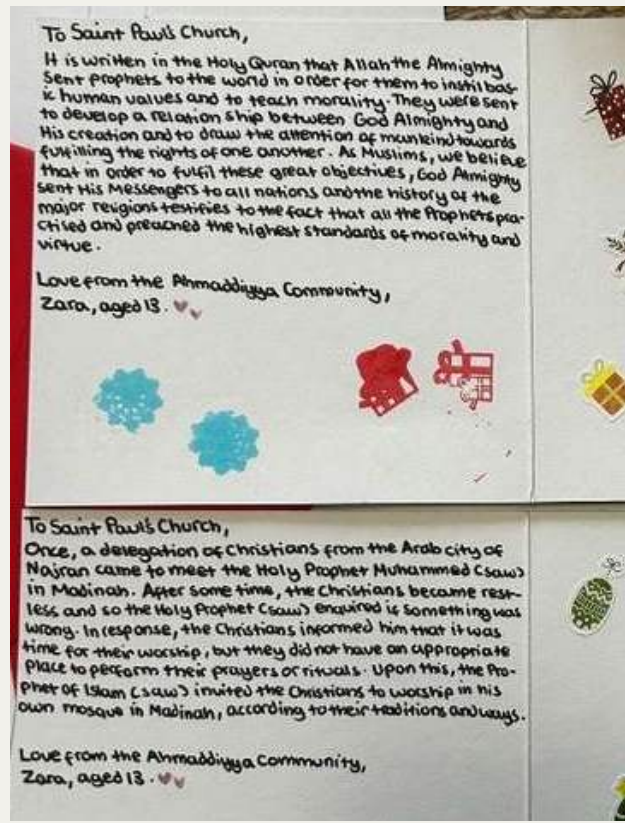 To Saint Paul's Church,
It is written in the Holy Quran that Allah the Almighty
sent prophets to the world in order for them to instil bas-
ic human values and to teach morality. They were sent
to develop a relation ship between God Almighty and
His creation and to draw the attention of mankind towards
fulfilling the rights of one another. As Muslims, we believe
that in order to fulfil these great objectives, God Almighty
sent His Messengers to all nations and the history of the
major religions testifies to the fact that all the Prophets pra-
ctised and preached the highest standards of morality and
virtue.
Love from the Ahmaddiyya Community,
Zara, aged 13.
To Saint Paul's Church,
Once, a delegation of Christians from the Arab city of
Najran came to meet the Holy Prophet Muhammed (saw)
in Madinah. After some time, the Christians became rest-
less and so the Holy Prophet (saw) enquired if something was
wrong. In response, the Christians informed him that it was
time for their worship, but they did not have an appropriate
place to perform their prayers or rituals. Upon this, the Pro-
phet of Islam (saw) invited the Christians to worship in his
own mosque in Madinah, according to their traditions and ways.
Love from the Ahmaddiyya Community,
Zara, aged 13.